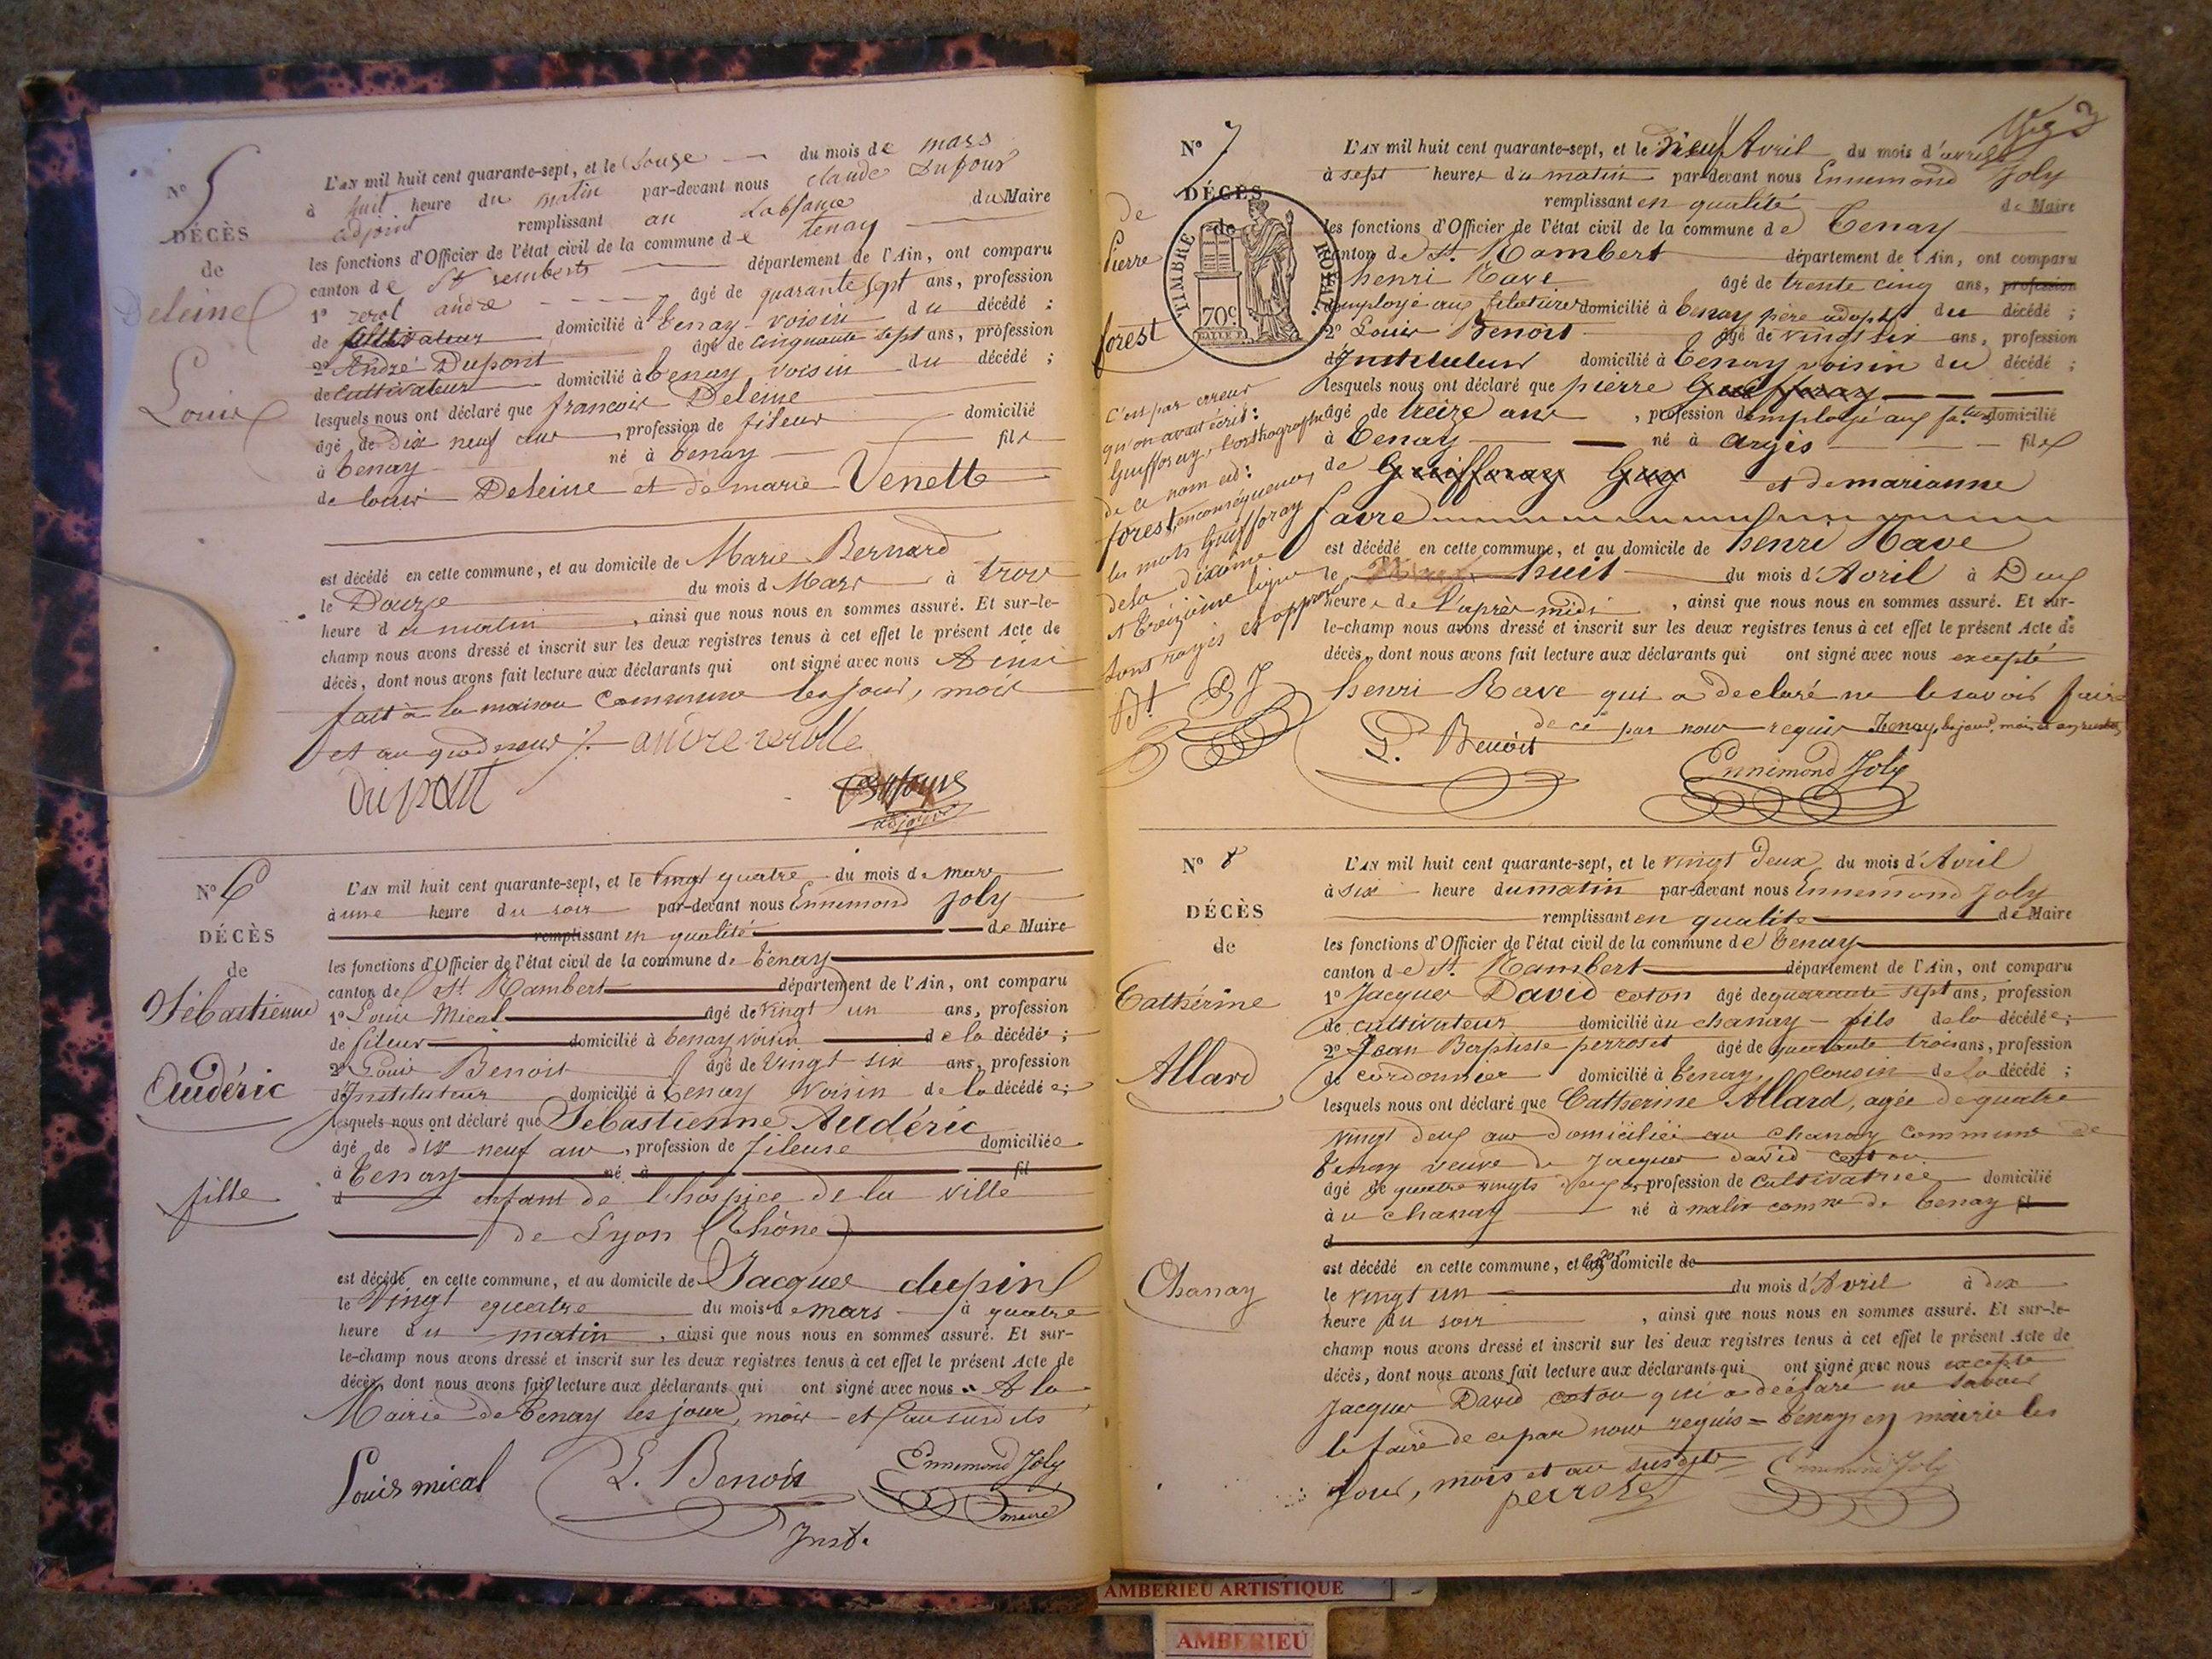 N° 5
DÉCÈS
de
Deleine
Louis
L'AN mil huit cent quarante-sept, et le douze du mois de mars
à huit heure du matin par-devant nous claude Dufour
adjoint remplissant en Labsance du Maire
les fonctions d'Officier de l'état civil de la commune de tenay
canton de St rembert département de l'Ain, ont comparu
1° zerol andré âgé de quarante sept ans, profession
de cultivateur domicilié à tenay voisin du décédé ;
2° André Dupont âgé de cinquante sept ans, profession
de Cultivateur domicilié à tenay voisin du décédé ;
lesquels nous ont déclaré que francois Deleine
âgé de Dix neuf ans, profession de fileur domicilié
à tenay né à tenay fils
de louis Deleine et de marie Venette
est décédé en cette commune, et au domicile de Marie Bernard
le Douze du mois d Mars à trois
heure du matin, ainsi que nous nous en sommes assuré. Et sur-le-
champ nous avons dressé et inscrit sur les deux registres tenus à cet effet le présent Acte de
décès, dont nous avons fait lecture aux déclarants qui ont signé avec nous Ainsi
fait à la maison Commune les jour, mois
et an que dessus
dupont
adjoint
N° 6
DÉCÈS
de
Sébastienne
Audéric
fille
L'AN mil huit cent quarante-sept, et le vingt quatre du mois de mars
à une heure du soir par-devant nous Ennemond Joly
remplissant en qualité de Maire
les fonctions d'Officier de l'état civil de la commune de tenay
canton de St Rambert département de l'Ain, ont comparu
1° Louis Mical âgé de vingt un ans, profession
de fileur domicilié à tenay voisin de la décédée ;
2° Louis Benoit âgé de vingt six ans, profession
d'Instituteur domicilié à tenay voisin de la décédée ;
lesquels nous ont déclaré que Sebastienne Audéric
âgé de dix neuf ans, profession de fileuse domiciliée
à tenay né à fil
d enfant de l'hospice de la ville
de Lyon (Rhône)
est décédé en cette commune, et au domicile de Jacques dupin
le vingt quatre du mois de mars à quatre
heure du matin, ainsi que nous nous en sommes assuré. Et sur-
le-champ nous avons dressé et inscrit sur les deux registres tenus à cet effet le présent Acte de
décès, dont nous avons fait lecture aux déclarants qui ont signé avec nous A la
Mairie de tenay les jour, mois et an susdits
Louis mical L. Benoit Ennemond Joly
maire
Inst.
3
N° 7
DÉCÈS
de
de
Pierre
forest
TIMBRE ROYAL
70c
C'est par erreur
qu'on avait écrit:
Guiffray, l'orthographe
de ce nom est:
forest, en conséquence,
les mots Guiffray
de la dixième
et treizième ligne
sont rayés et approuvés
Bt EJ
L'AN mil huit cent quarante-sept, et le neuf Avril du mois d'avril
à sept heures du matin par-devant nous Ennemond Joly
remplissant en qualité de Maire
les fonctions d'Officier de l'état civil de la commune de tenay
canton de St. Rambert département de l'Ain, ont comparu
henri Rave âgé de trente cinq ans, profession
d'employé aux filatures domicilié à tenay père adoptif du décédé ;
2° Louis Benoit âgé de vingt six ans, profession
d'Instituteur domicilié à tenay voisin du décédé ;
lesquels nous ont déclaré que pierre Guiffray
âgé de treize ans, profession d'employé aux fa.tures domicilié
à tenay né à argis fils
de Guiffray Guy et de marianne
favre
est décédé en cette commune, et au domicile de henri Rave
le huit du mois d'Avril à Deux
heures de l'après midi, ainsi que nous nous en sommes assuré. Et sur-
le-champ nous avons dressé et inscrit sur les deux registres tenus à cet effet le présent Acte de
décès, dont nous avons fait lecture aux déclarants qui ont signé avec nous excepté
henri Rave qui a declaré ne le savoir faire
de ce par nous requis Tenay, les jour, mois et an susdits
L. Benoit Ennemond Joly
N° 8
DÉCÈS
de
Cathérine
Allard
Chanay
L'AN mil huit cent quarante-sept, et le vingt deux du mois d'Avril
à six heure du matin par-devant nous Ennemond Joly
remplissant en qualité de Maire
les fonctions d'Officier de l'état civil de la commune de tenay
canton de St. Rambert département de l'Ain, ont comparu
1° Jacques David coton âgé de quarante sept ans, profession
de cultivateur domicilié au chanay fils de la décédée ;
2° Jean Baptiste perroset âgé de quarante trois ans, profession
de cordonnier domicilié à tenay, cousin de la décédé ;
lesquels nous ont déclaré que Catherine Allard, agée de quatre
vingt deux ans domiciliée au chanay commune de
tenay veuve de Jacques david coton
âgé de quatre vingts deux ans, profession de Cultivatrice domicilié
au chanay né à malix comne de tenay fil
d
est décédé en cette commune, et domicile de
le vingt un du mois d'Avril à dix
heure du soir, ainsi que nous nous en sommes assuré. Et sur-le-
champ nous avons dressé et inscrit sur les deux registres tenus à cet effet le présent Acte de
décès, dont nous avons fait lecture aux déclarants qui ont signé avec nous excepté
Jacques David coton qui a déclaré ne savoir
le faire de ce par nous requis = tenay en mairie les
jour, mois et an susdits Ennemond Joly
perroset
AMBERIEU ARTISTIQUE
AMBERIEU